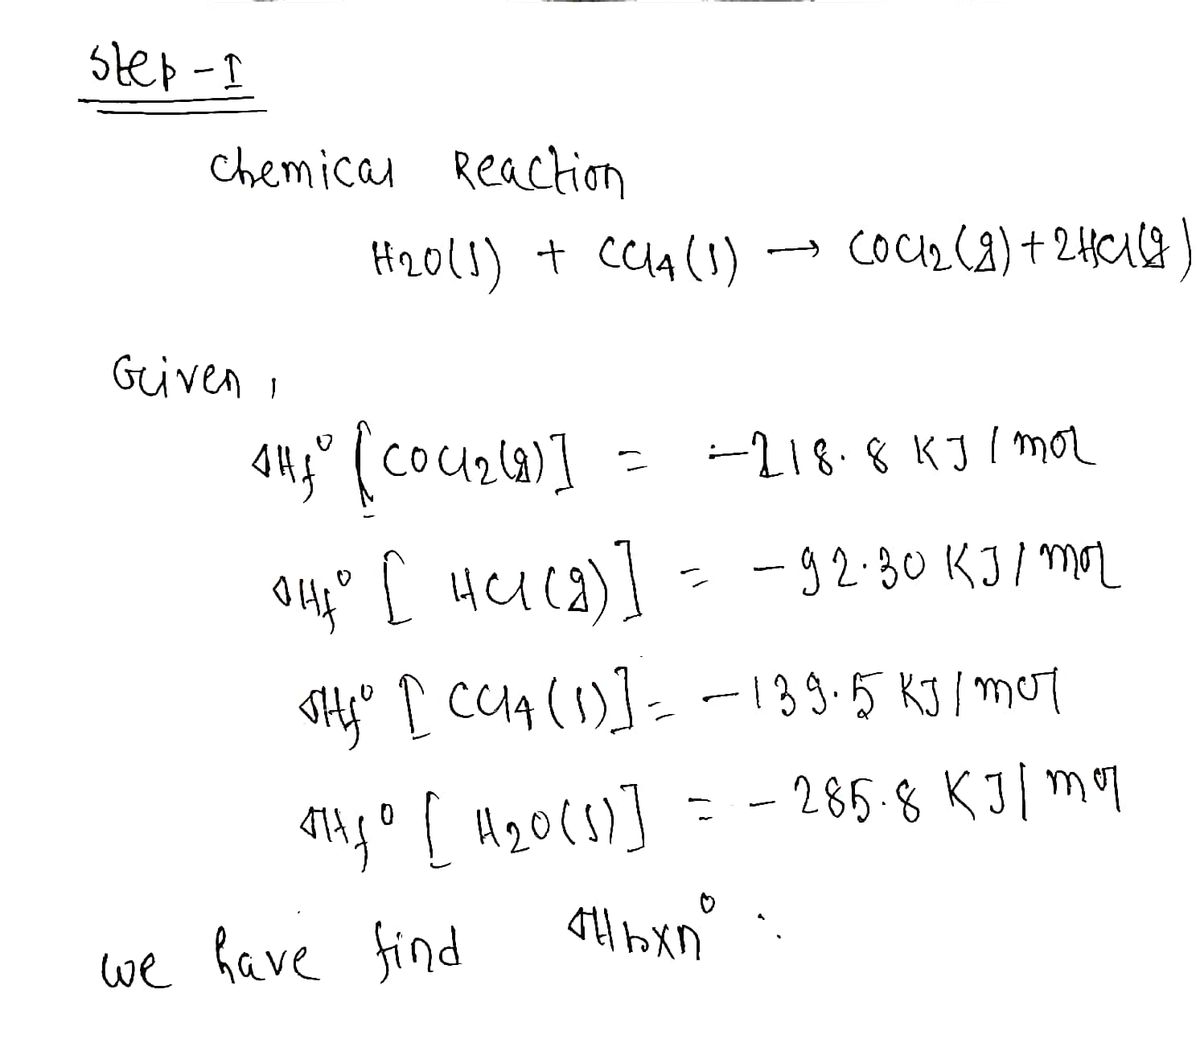 Step-I
Chemical Reaction
H2O(l) + CCl4(l) → COCl2(g)+2HCl(g)
Given,
ΔHf° [COCl2(g)] = -218.8 KJ/mol
ΔHf° [HCl(g)] = -92.30 KJ/mol
ΔHf° [CCl4(l)] = -139.5 KJ/mol
ΔHf° [H2O(l)] = -285.8 KJ/mol
we have find ΔHrxn° :